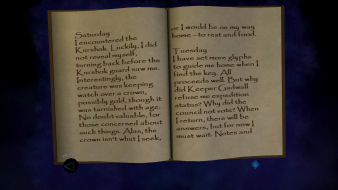 Saturday
I encountered the
Karshok. Luckily, I did
not reveal myself,
turning back before the
Karshok guard saw me.
Interestingly, the
creature was keeping
watch over a crown,
possibly gold, though it
was tarnished with age.
No doubt valuable, for
those concerned about
such things. Alas, the
crown isn't what I seek,
or I would be on my way
home - to rest and food.
Tuesday
I have set more glyphs
to guide me home when I
find the key. All
proceeds well. But why
did Keeper Gadwall
refuse me expedition
status? Why did the
council not vote? When
I return, there will be
answers, but for now I
must wait. Notes and